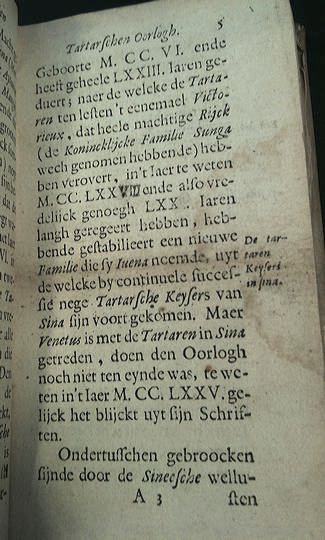 Tartarschen Oorlogh. 5
Geboorte M. CC. VI. ende
heeft geheele LXXIII. Iaren ge-
duert; naer de welcke de Tarta-
ren ten lesten 't eenemael Victo-
rieux, dat heele machtige Rijck
(de Konincklijcke Familie Sunga
wech genomen hebbende) heb-
ben verovert, in't Iaer te weten
M. CC. LXXVIII ende also vre-
delijck genoegh LXX. Iaren
langh geregeert hebben, heb-
bende gestabilieert een nieuwe
Familie die sy Iuena noemde, uyt
de welcke by continuele succes-
sie nege Tartarsche Keysers van
Sina sijn voort gekomen. Maer
Venetus is met de Tartaren in Sina
getreden, doen den Oorlogh
noch niet ten eynde was, te we-
ten in't Iaer M. CC. LXXV. ge-
lijck het blijckt uyt sijn Schrif-
ten.
De tar-
taren
Keysers
in sina.
Ondertusschen gebroocken
sijnde door de Sineesche wellu-
A 3 sten